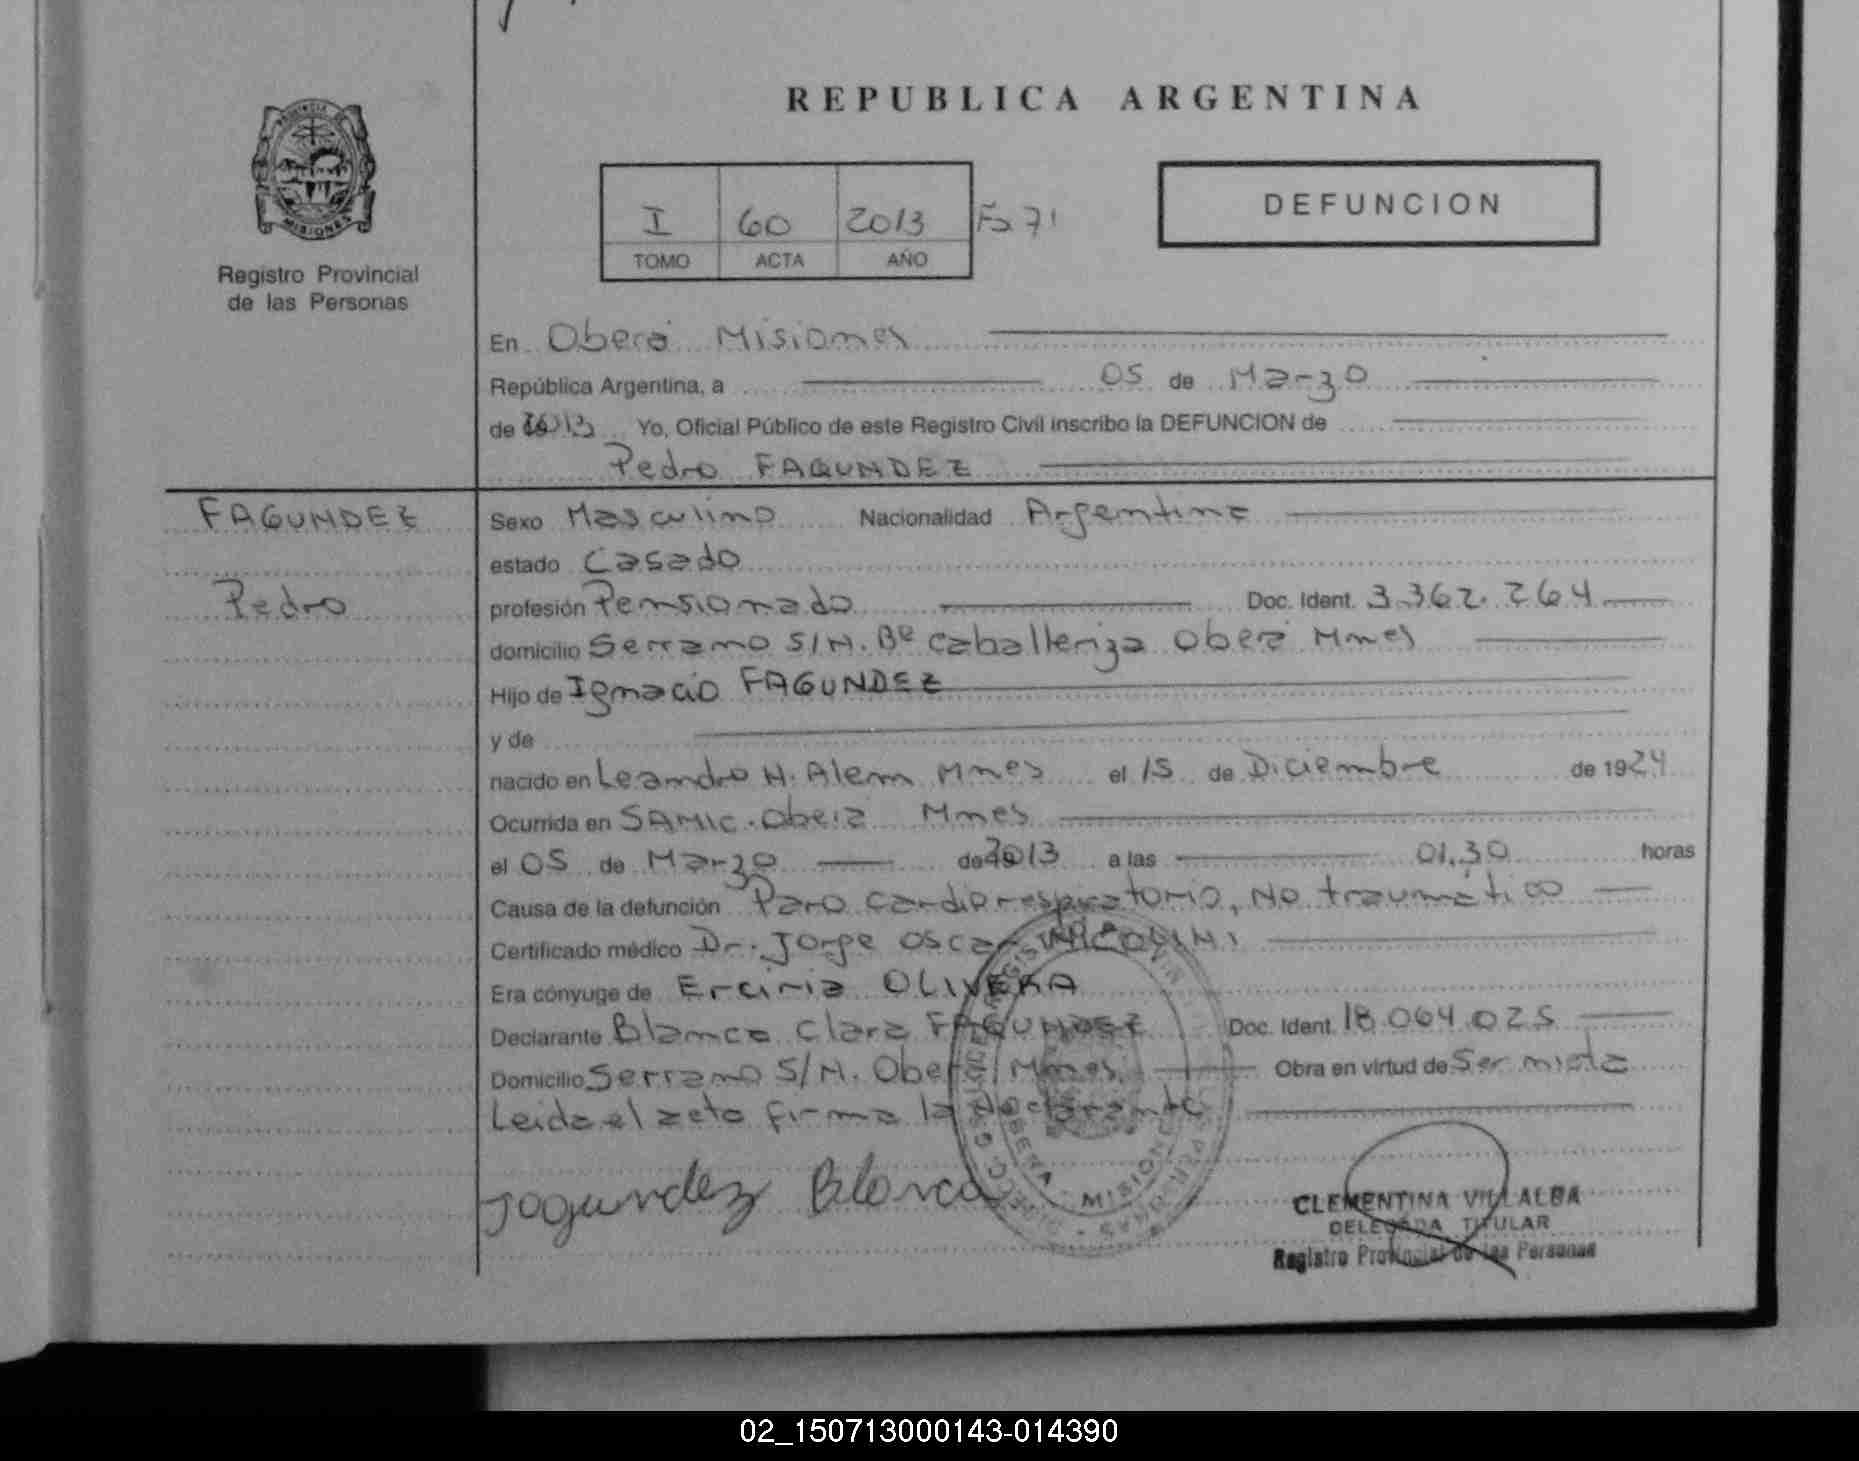 REPUBLICA ARGENTINA
PROVINCIA DE
MISIONES
Registro Provincial
de las Personas
I 60 2013 Fs 71
TOMO ACTA AÑO
DEFUNCION
En Oberá Misiones
República Argentina, a 05 de Marzo
de 2013 Yo, Oficial Público de este Registro Civil inscribo la DEFUNCION de
Pedro FAGUNDEZ
FAGUNDEZ
Pedro
Sexo Masculino Nacionalidad Argentina
estado Casado
profesión Pensionado Doc. Ident. 3.362.264
domicilio Serrano S/N. Bº Caballeriza Oberá Mnes
Hijo de Ignacio FAGUNDEZ
y de
nacido en Leandro N. Alem Mnes el 15 de Diciembre de 1924
Ocurrida en SAMIC. Oberá Mnes
el 05 de Marzo de 2013 a las 01,30 horas
Causa de la defunción Paro cardiorespiratorio, No traumático
Certificado médico Dr. Jorge Oscar NICOLINI
Era cónyuge de Erciria OLIVERA
Declarante Blanca Clara FAGUNDEZ Doc. Ident. 18.064.025
Domicilio Serrano S/N. Oberá Mnes. Obra en virtud de Ser nieta
Leida el acta firma la declarante
Fagundez Blanca
OBERA MISIONES
CLEMENTINA VILLALBA
DELEGADA TITULAR
Registro Provincial de las Personas
02_150713000143-014390